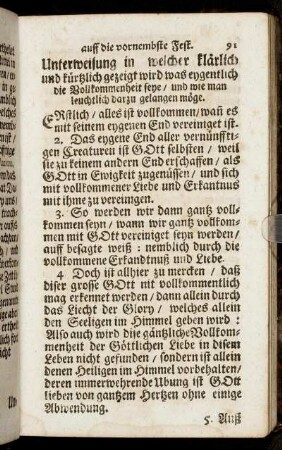 auff die vornembste Fest. 91
Unterweisung in welcher klärlich
und kürtzlich gezeigt wird was eygentlich
die Vollkommenheit seye / und wie man
leuchtlich darzu gelangen möge.
ERstlich / alles ist vollkommen / wañ es
mit seinem eygenen End vereiniget ist.
2. Das eygene End aller vernünfftigen
Creaturen ist GOtt selbsten / weil
sie zu keinem andern End erschaffen / als
GOtt in Ewigkeit zugenüssen / und sich
mit vollkommener Liebe und Erkantnus
mit ihme zu vereinigen.
3. So werden wir dann gantz vollkommen
seyn / wann wir gantz vollkommen
mit GOtt vereiniget seyn werden /
auff besagte weiß : nemblich durch die
vollkommene Erkandtnuß und Liebe.
4 Doch ist allhier zu mercken / daß
diser grosse GOtt nit vollkommentlich
mag erkennet werden / dann allein durch
das Liecht der Glory / welches allein
den Seeligen im Himmel geben wird :
Also auch wird dise gäntzliche Vollkommenheit
der Göttlichen Liebe in disem
Leben nicht gefunden / sondern ist allein
denen Heiligen im Himmel vorbehalten /
deren immerwehrende Ubung ist GOtt
lieben von gantzem Hertzen ohne einige
Abwendung.
5. Auß